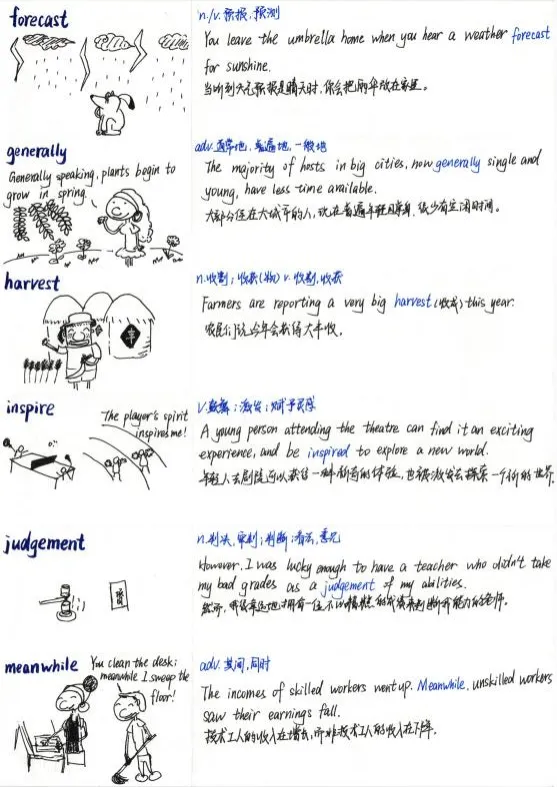 forecast
n./v. 预报,预测
You leave the umbrella home when you hear a weather forecast
for sunshine.
当听到天气预报是晴天时,你会把雨伞放在家里。
generally
Generally speaking, plants begin to
grow in spring.
adv. 通常地,普遍地,一般地
The majority of hosts in big cities, now generally single and
young, have less time available.
大部分住在大城市的人,现在普遍年轻且单身,很少有空闲时间。
harvest
丰
n.收割;收获(物) v.收割,收获
Farmers are reporting a very big harvest (收成) this year.
农民们说今年会获得大丰收。
inspire
The player's spirit
inspires me!
v.鼓舞;激发;赋予灵感
A young person attending the theatre can find it an exciting
experience, and be inspired to explore a new world.
年轻人去剧院可以获得一种新奇的体验,也被激发去探索一个新的世界.
judgement
n.判决,审判;判断;看法,意见
However, I was lucky enough to have a teacher who didn't take
my bad grades as a judgement of my abilities.
然而,我很幸运地拥有一位不以糟糕的成绩来判断我能力的老师。
meanwhile
You clean the desk;
meanwhile I sweep the
floor!
adv.其间,同时
The incomes of skilled workers went up. Meanwhile, unskilled workers
saw their earnings fall.
技术工人的收入在增长,而非技术工人的收入在下降。